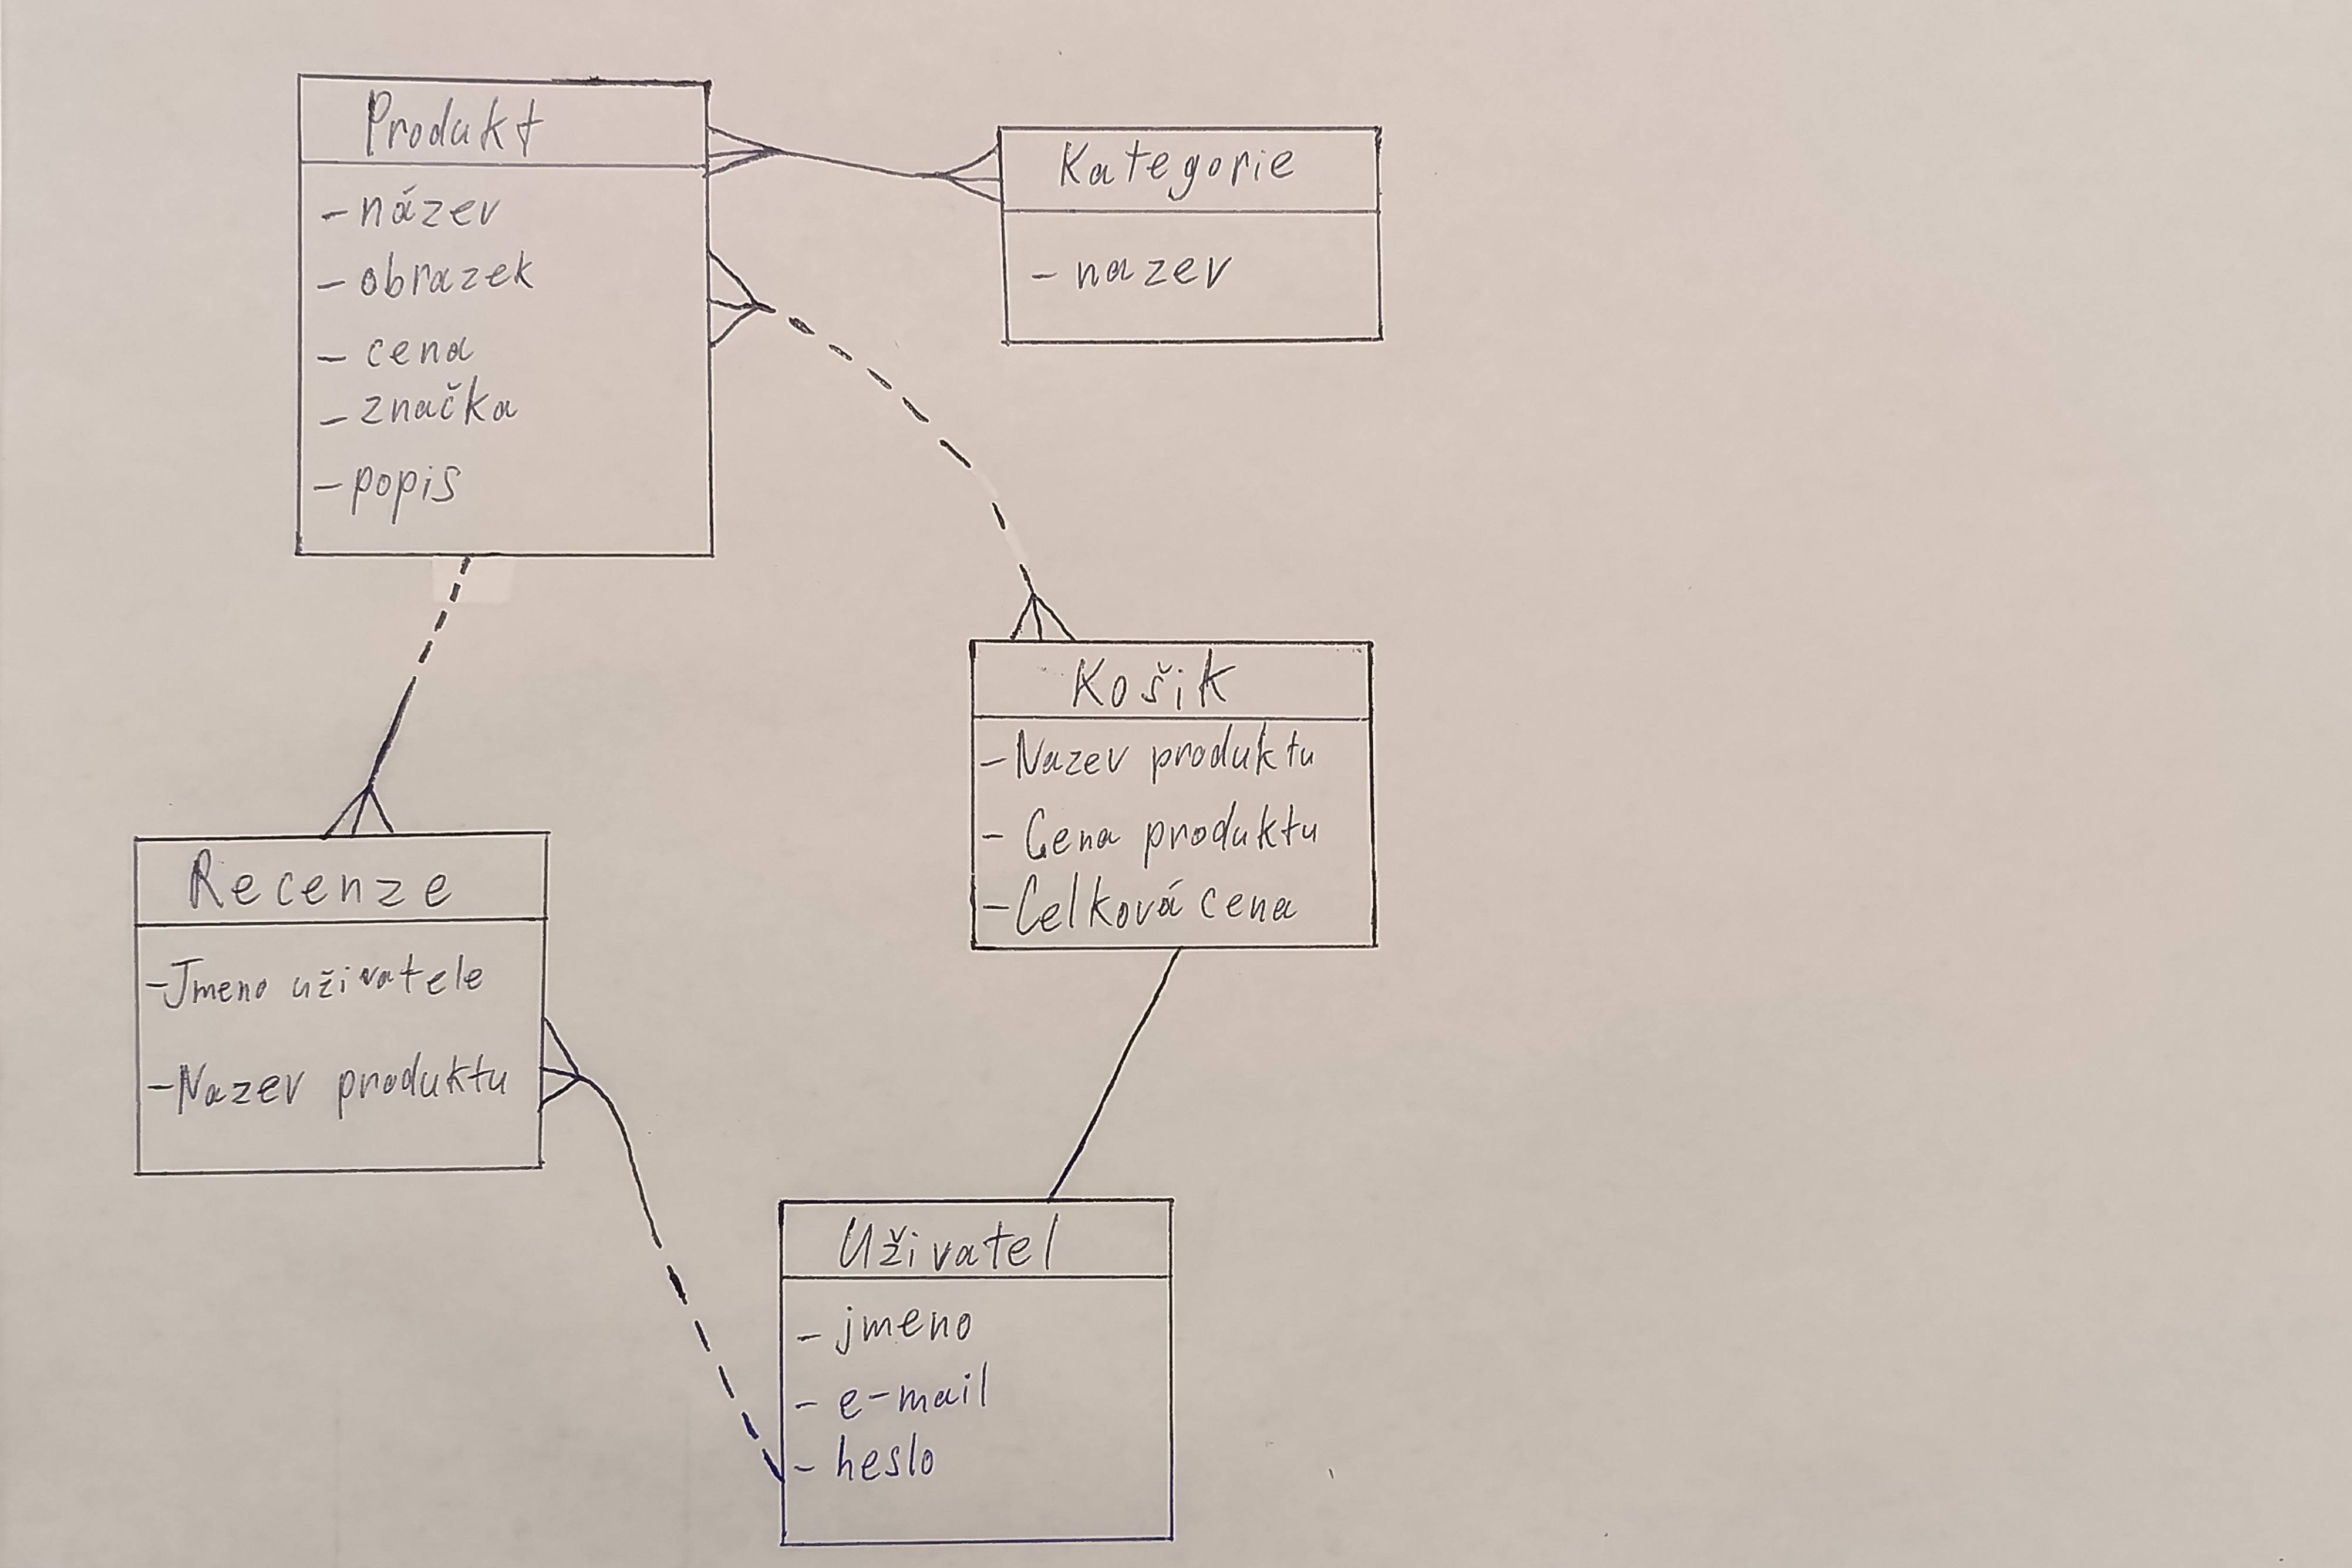 Produkt
- název
- obrazek
- cena
- značka
- popis
Kategorie
- nazev
Košik
- Nazev produktu
- Cena produktu
- Celková cena
Recenze
- Jmeno uživatele
- Nazev produktu
Uživatel
- jmeno
- e-mail
- heslo